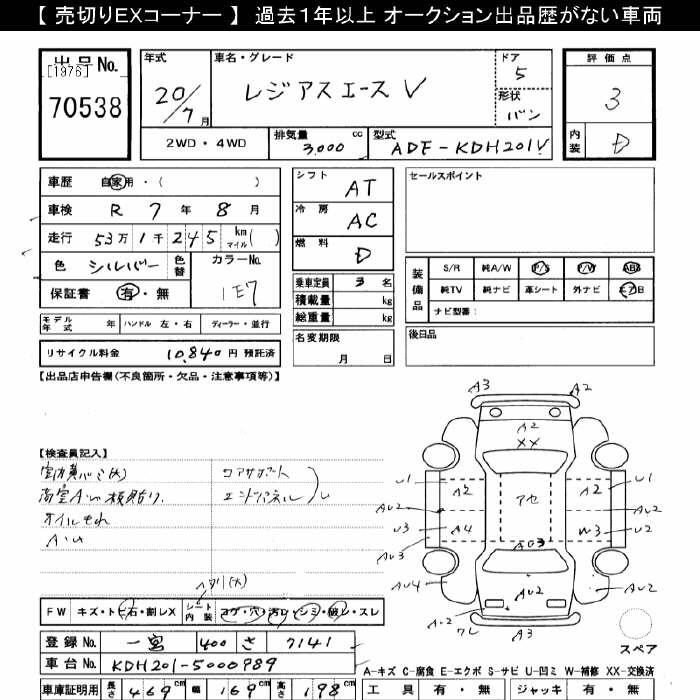 【 売切りEXコーナー 】 過去1年以上 オークション出品歴がない車両
出品No.
[1976]
70538
年式
20/7月
車名・グレード
レジアスエース V
ドア
5
形状
バン
2WD・4WD
排気量
3,000 cc
型式
ADF-KDH201V
評価点
3
内装
D
車歴 自家用・( )
車検 R 7 年 8 月
走行 53万1千245 km マイル( )
色 シルバー 色替 カラーNo.
1E7
保証書 有・無
シフト AT
冷房 AC
燃料 D
乗車定員 3 名
積載量 kg
総重量 kg
名変期限
月 日
セールスポイント
装備品
S/R 純A/W P/S P/W ABS
純TV 純ナビ 革シート 外ナビ エアB
ナビ型番:
後日品
モデル年式 年 ハンドル 左・右 ディーラー・並行
リサイクル料金 10,840 円 預託済
【出品店申告欄(不良箇所・欠品・注意事項等)】
【検査員記入】
コアサポート
エンドパネル
オイルもれ
A・U
A3 A2
A2
XX
U1 A2 アセ A2 U1
AU2 AU2
U3 A4 W3 U2
AU3 AU3
AU4 AU2 AU2
A2
ワレ A3
スペア
FW キズ・トビ石・割レX シート内装 コゲ・穴・汚レ・シミ・破レ・スレ
登録No. 一宮 400 さ 7141
車台No. KDH201-5000989
車庫証明用 長さ 469cm 幅 169cm 高さ 198cm
A-キズ C-腐食 E-エクボ S-サビ U-凹ミ W-補修 XX-交換済
工具 有・無 ジャッキ 有・無